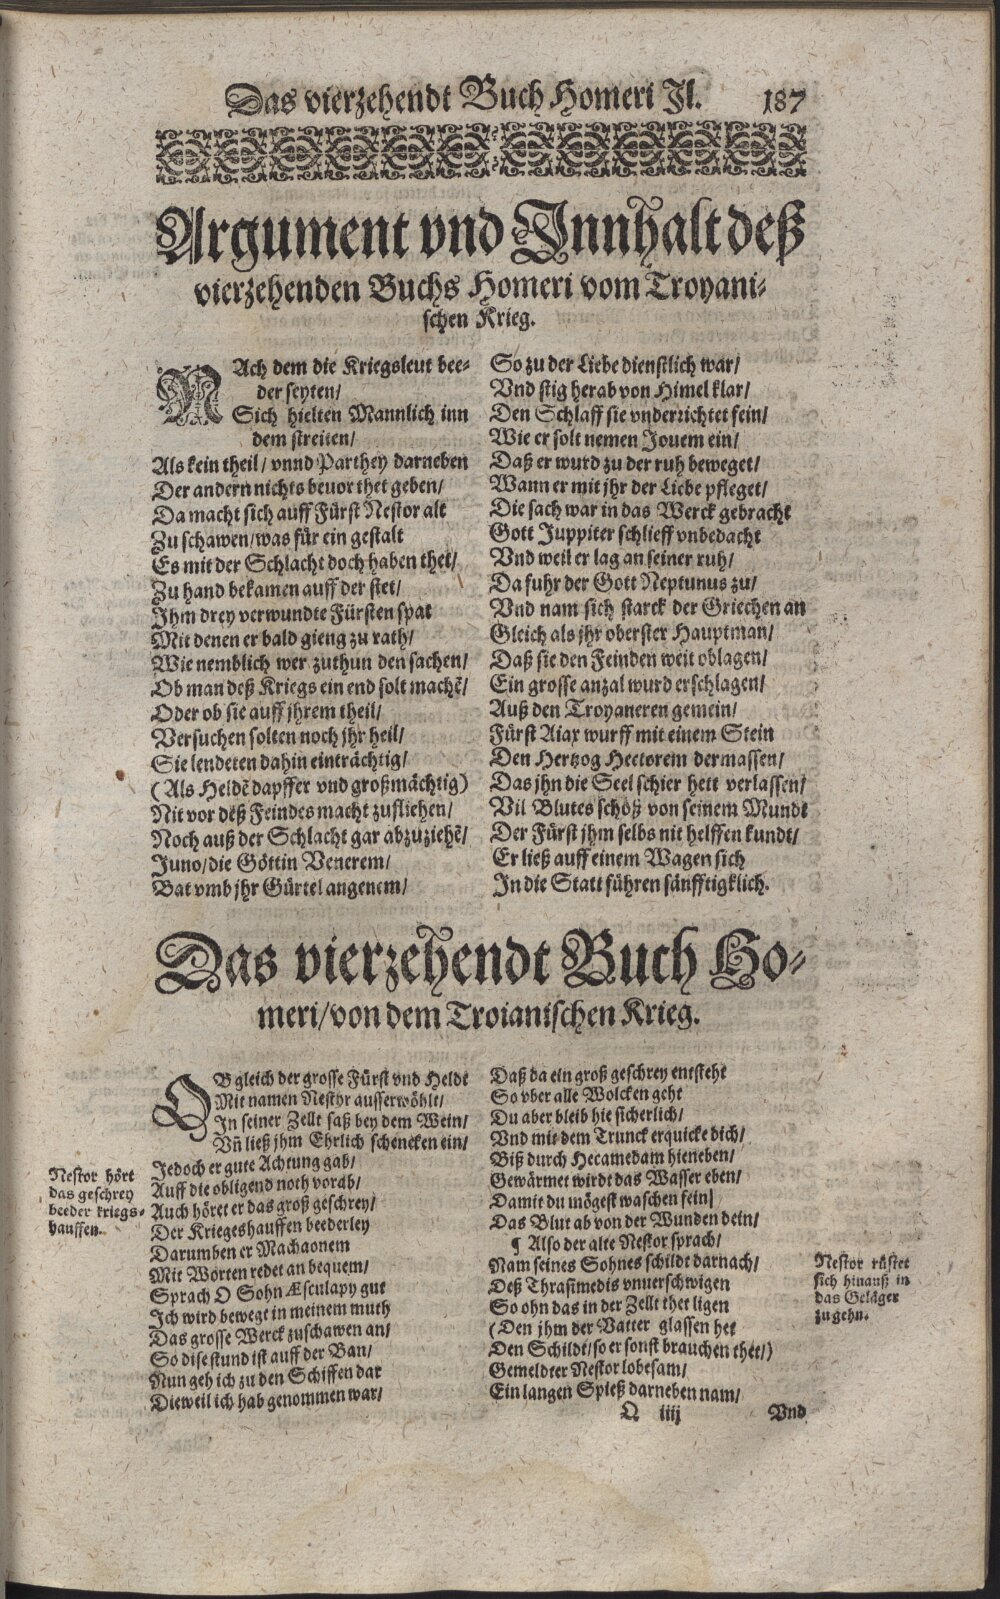 Das vierzehendt Buch Homeri Il. 187
Argument vnd Innhalt deß
vierzehenden Buchs Homeri vom Troyani-
schen Krieg.
NAch dem die Kriegsleut bee-
der seyten/
Sich hielten Mannlich inn
dem streiten/
Als kein theil/ vnnd Parthey darneben
Der andern nichts beuor thet geben/
Da macht sich auff Fürst Nestor alt
Zu schawen/was für ein gestalt
Es mit der Schlacht doch haben thet/
Zu hand bekamen auff der stet/
Ihm drey verwundte Fürsten spat
Mit denen er bald gieng zu rath/
Wie nemblich wer zuthun den sachen/
Ob man deß Kriegs ein end solt machẽ/
Oder ob sie auff jhrem theil/
Versuchen solten noch jhr heil/
Sie lendeten dahin einträchtig/
(Als Heldẽ dapffer vnd großmächtig)
Nit vor deß Feindes macht zufliehen/
Noch auß der Schlacht gar abzuziehẽ/
Juno/die Göttin Venerem/
Bat vmb jhr Gürtel angenem/
So zu der Liebe dienstlich war/
Vnd stig herab von Himel klar/
Den Schlaff sie vnderrichtet fein/
Wie er solt nemen Jouem ein/
Daß er wurd zu der ruh beweget/
Wann er mit jhr der Liebe pfleget/
Die sach war in das Werck gebracht
Gott Juppiter schlieff vnbedacht
Vnd weil er lag an seiner ruh/
Da fuhr der Gott Neptunus zu/
Vnd nam sich starck der Griechen an
Gleich als jhr oberster Hauptman/
Daß sie den Feinden weit oblagen/
Ein grosse anzal wurd erschlagen/
Auß den Troyaneren gemein/
Fürst Aiax wurff mit einem Stein
Den Hertzog Hectorem dermassen/
Das jhn die Seel schier hett verlassen/
Vil Blutes schöß von seinem Mundt
Der Fürst jhm selbs nit helffen kundt/
Er ließ auff einem Wagen sich
In die Statt führen sänfftigklich.
Das vierzehendt Buch Ho-
meri/von dem Troianischen Krieg.
OBgleich der grosse Fürst vnd Heldt
Mit namen Nestor ausserwöhlt/
In seiner Zellt saß bey dem Wein/
Vñ ließ jhm Ehrlich schencken ein/
Jedoch er gute Achtung gab/
Auff die obligend noth vorab/
Auch höret er das groß geschrey/
Der Kriegeshauffen beederley
Darumben er Machaonem
Mit Worten redet an bequem/
Sprach O Sohn Æsculapy gut
Ich wird bewegt in meinem muth
Das grosse Werck zuschawen an/
So dise stund ist auff der Ban/
Nun geh ich zu den Schiffen dar
Dieweil ich hab genommen war/
Nestor hört
das geschrey
beeder kriegs-
hauffen.
Daß da ein groß geschrey entsteht
So vber alle Wolcken geht
Du aber bleib hie sicherlich/
Vnd mit dem Trunck erquicke dich/
Biß durch Hecamedam hieneben/
Gewärmet wirdt das Wasser eben/
Damit du mögest waschen fein/
Das Blut ab von der Wunden dein/
¶ Also der alte Nestor sprach/
Nam seines Sohnes schildt darnach/
Deß Thrasimedis vnuerschwigen
So ohn das in der Zellt thet ligen
(Den jhm der Vatter glassen het
Den Schildt/so er sonst brauchen thet/)
Gemeldter Nestor lobesam/
Ein langen Spieß darneben nam/
Nestor rüstet
sich hinauß in
das Geläger
zugehn.
Q iiij Vnd